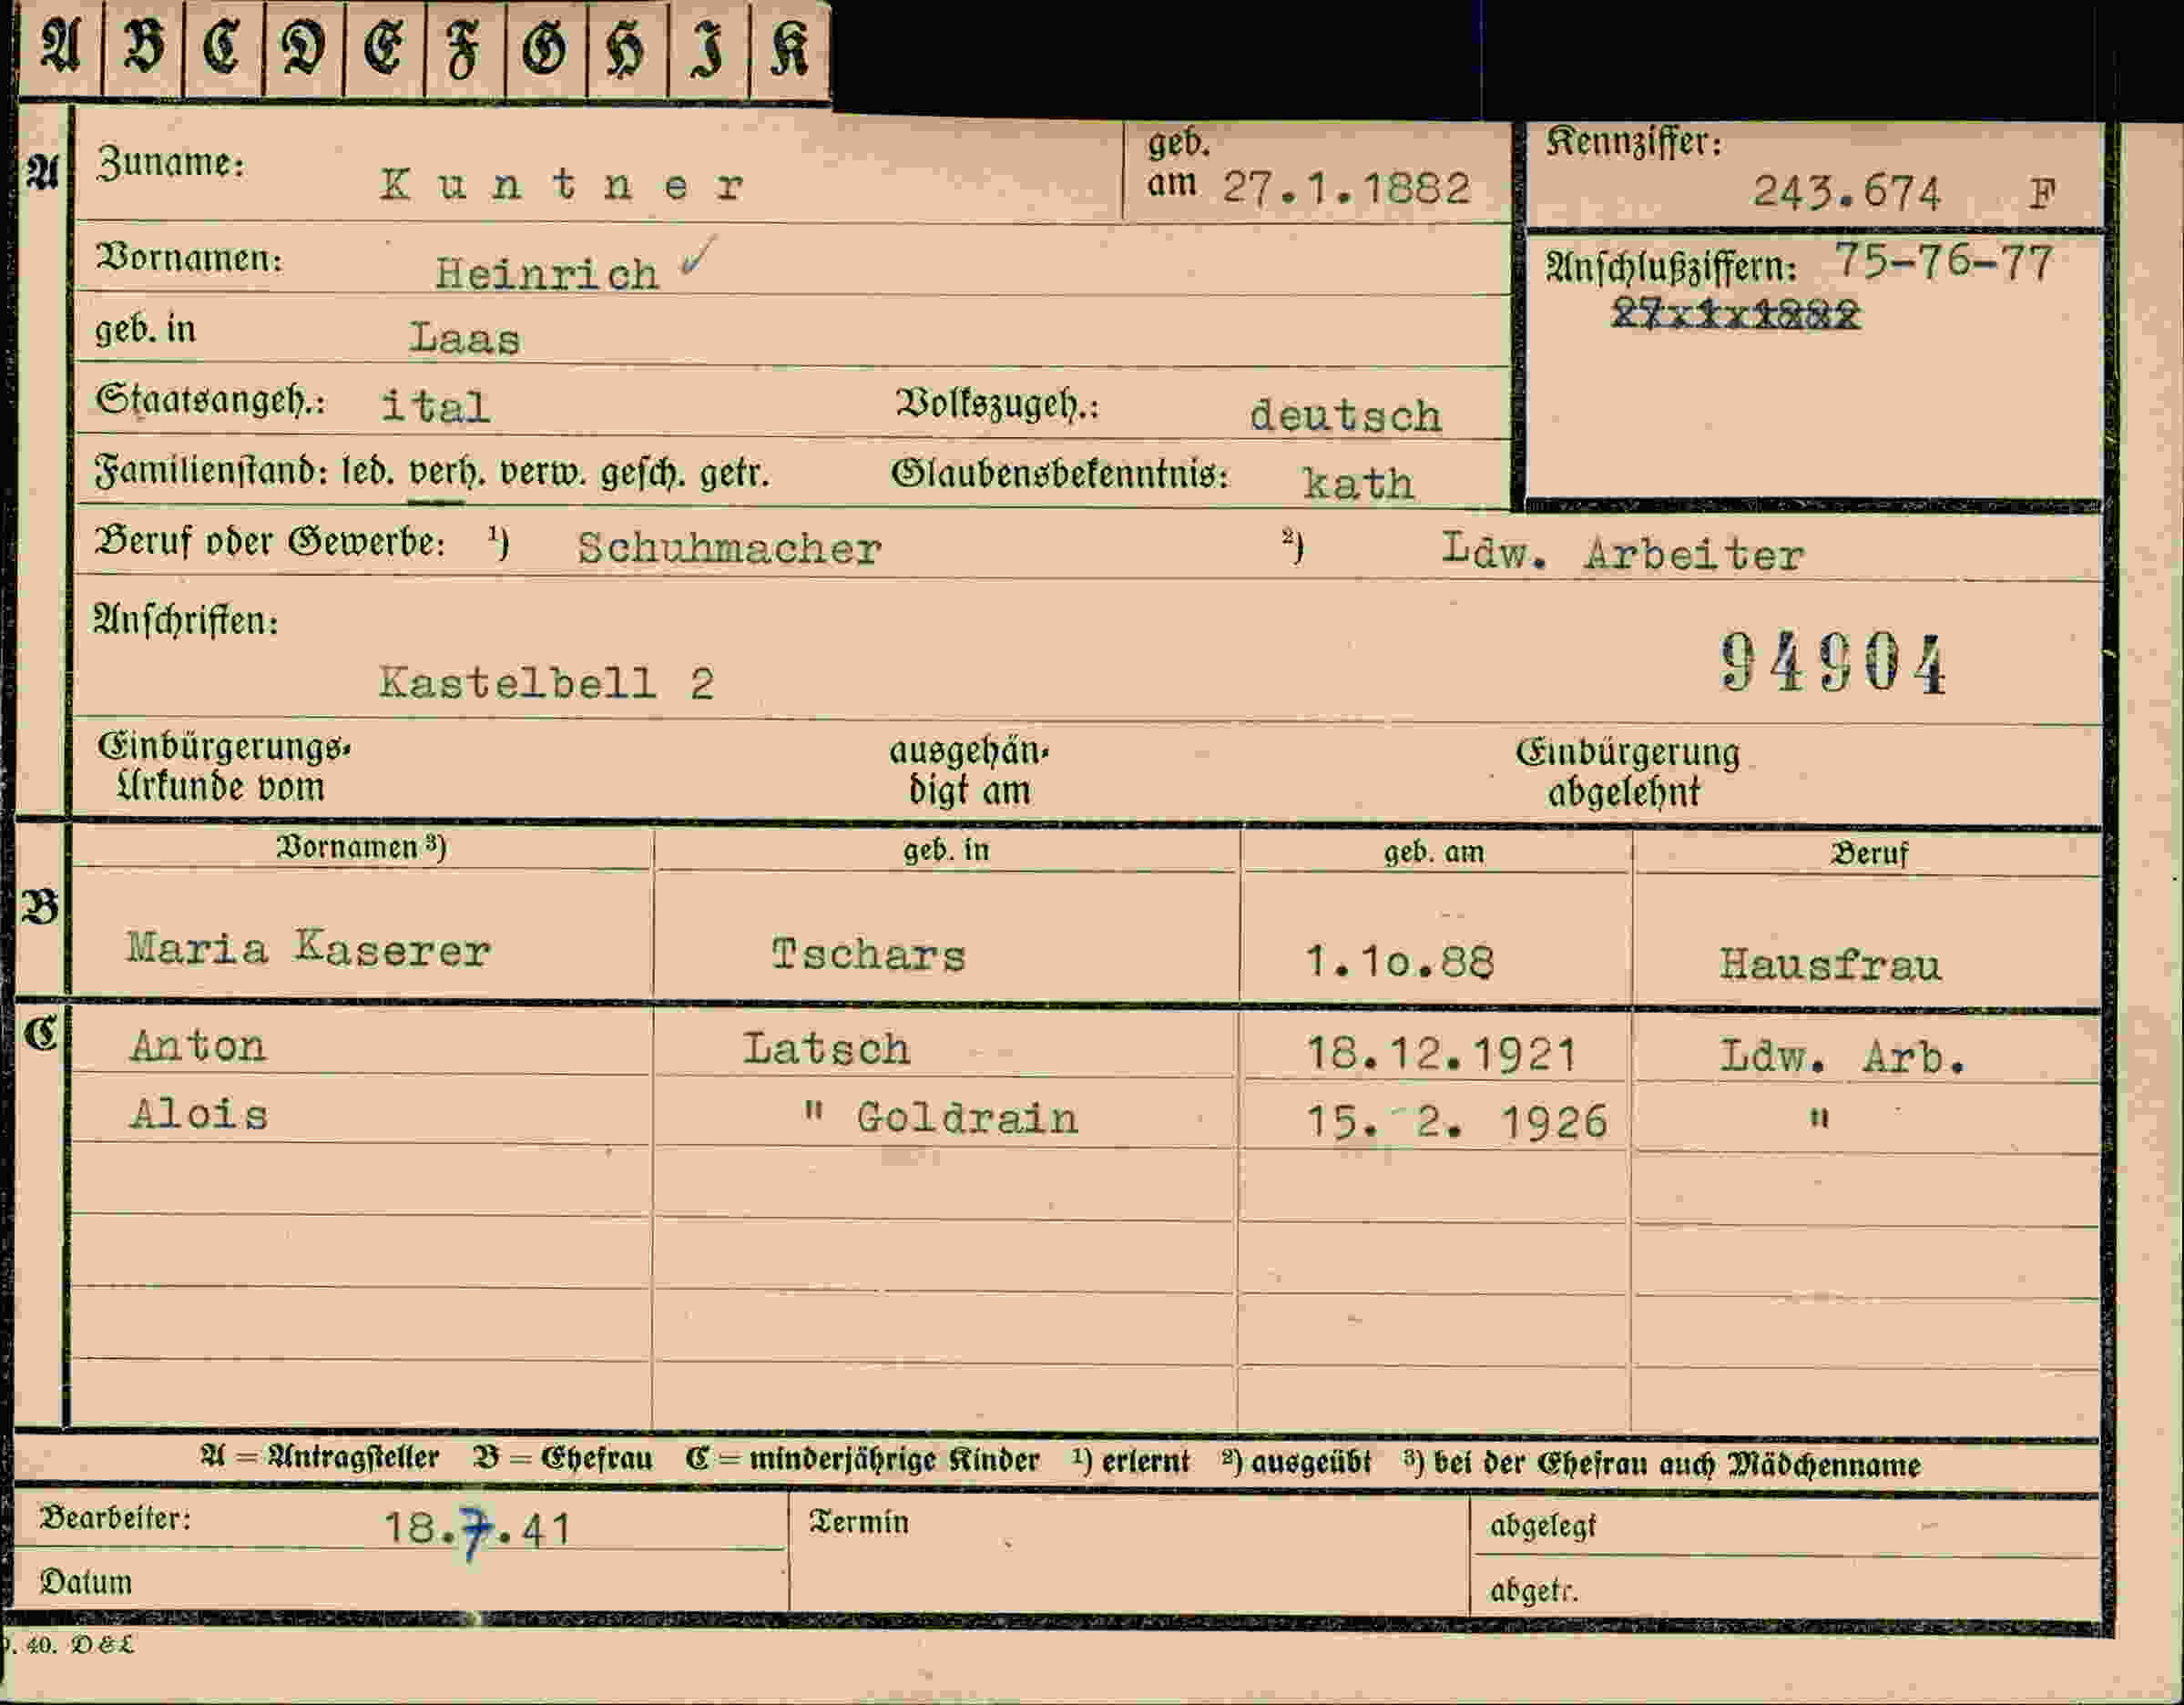 A B C D E F G H I K
A Zuname: Kuntner geb. am 27.1.1882 Kennziffer: 243.674 F
Vornamen: Heinrich ✓ Anschlußziffern: 75-76-77
27x1x1882
geb. in Laas
Staatsangeh.: ital Volkszugeh.: deutsch
Familienstand: led. verh. verw. gesch. getr. Glaubensbekenntnis: kath
Beruf oder Gewerbe: ¹) Schuhmacher ²) Ldw. Arbeiter
Anschriften:
Kastelbell 2 94904
Einbürgerungs- ausgehän- Einbürgerung
Urkunde vom digt am abgelehnt
Vornamen ³) geb. in geb. am Beruf
B Maria Kaserer Tschars 1.1o.88 Hausfrau
C Anton Latsch 18.12.1921 Ldw. Arb.
Alois " Goldrain 15. 2. 1926 "
A = Antragsteller B = Ehefrau C = minderjährige Kinder ¹) erlernt ²) ausgeübt ³) bei der Ehefrau auch Mädchenname
Bearbeiter: 18.7.41 Termin abgelegt
Datum abgetr.
. 40. D & L